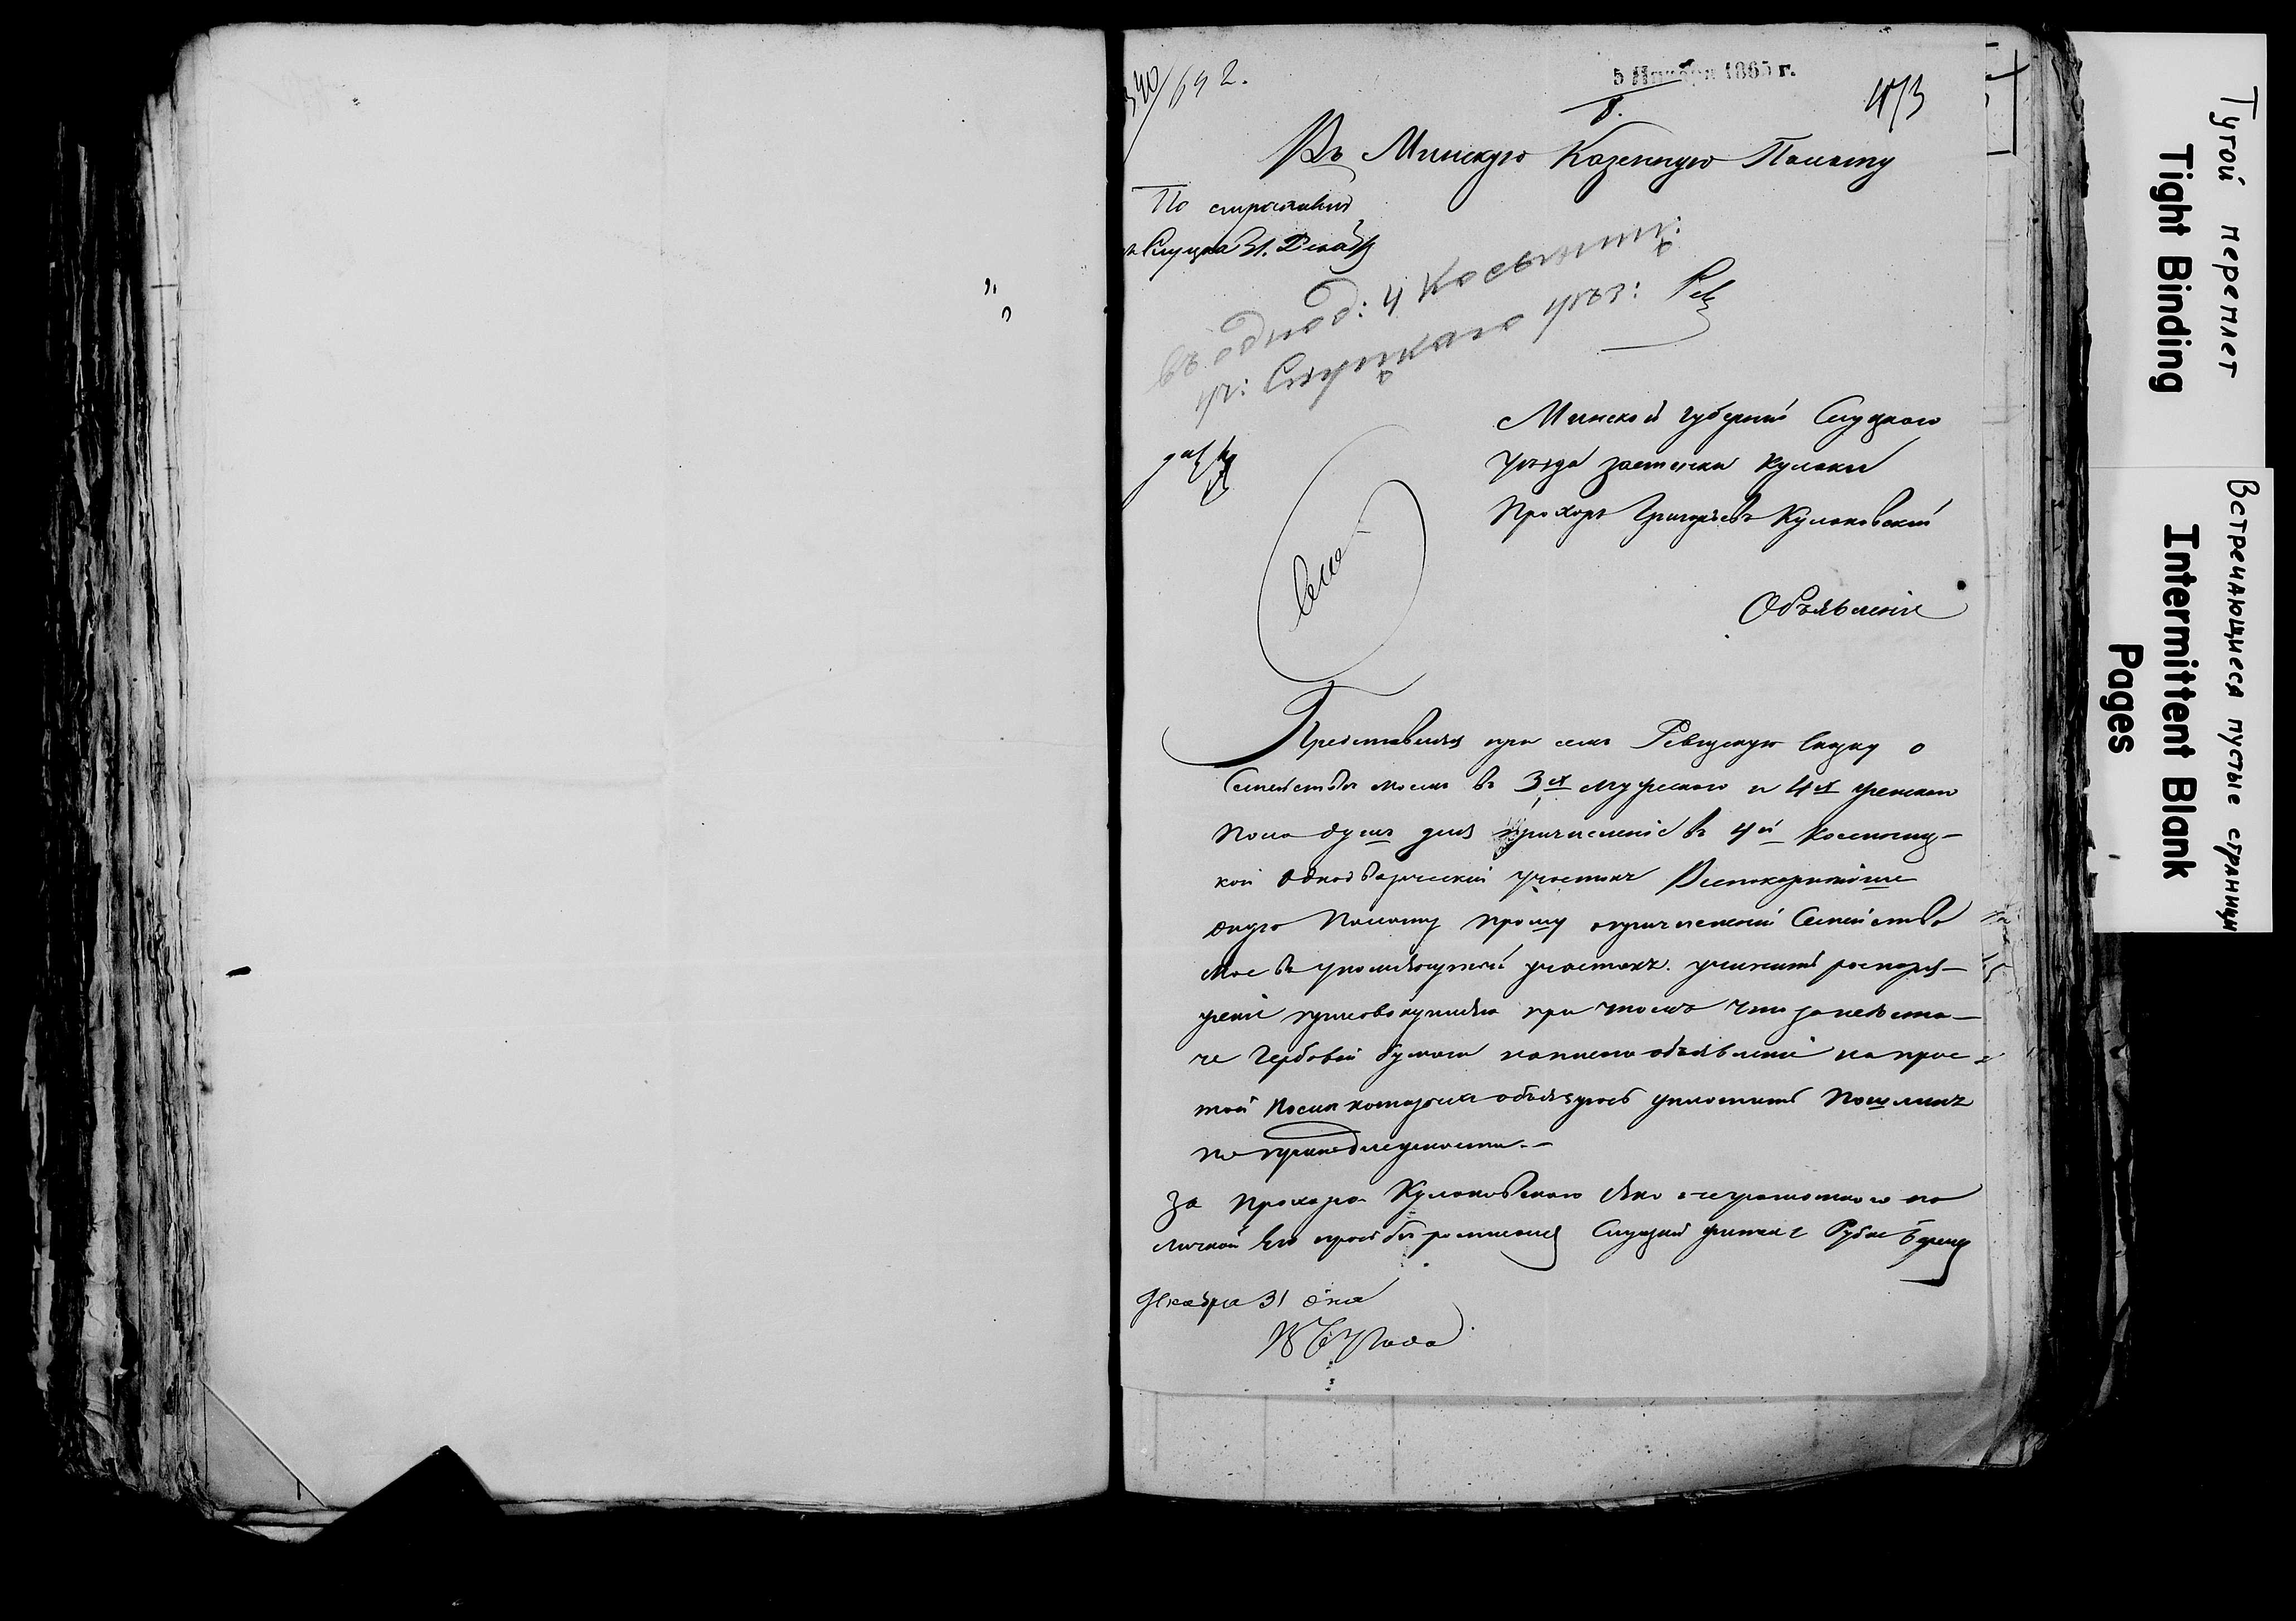 340/692.
5 Января 1865 г.
473
Въ Минскую Казенную Палату
По
Слуцка 31. Декаб
въ однод: 4 Косынич:
уч: Слуцкаго уѣз: Рев
Минской губерніи Слуцкаго
уѣзда застенка Кулаки
Прохоръ Григорьевъ Кулаковскій
Объявленіе
Представляя при семъ Ревизскую Сказку о
Семействѣ моемъ въ 3х мужескаго и 4х женскаго
пола душъ для причисленія въ 4й
кой однодворческій участокъ Всепокорнѣйше
оную Палату прошу о причисленіи Семейство
мое въ участокъ. учинить распоря-
женіе присовокупляя при томъ что за недоста-
че Гербовой бумаги написано объявленіе на прос-
той обязуюсь уплатить Пошлинъ
по принадлежности.-
За Прохора Кулаковскаго яко неграмотнаго по
личной Его просьбѣ росписался Слуцкій
Декабря 31 дня
Года
Тугой переплет
Tight Binding
Встречающиеся пустые страницы
Intermittent Blank
Pages